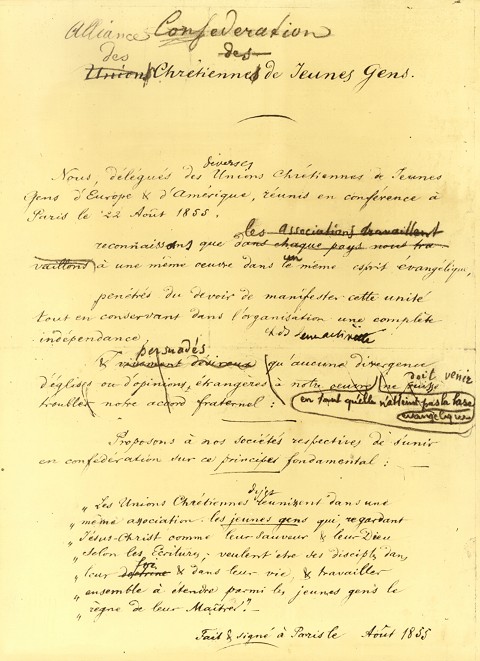 Alliance Confederation
des des
Unions Chrétiennes de Jeunes Gens.
diverses
Nous, délégués des Unions Chrétiennes de Jeunes
Gens d'Europe & d'Amérique, réunis en conférence à
Paris le 22 Août 1855.
les associations travaillent
reconnaissons que dans chaque pays nous tra
vaillons à une même oeuvre dans le même esprit évangélique,
un
pénétrés du devoir de manifester cette unité
tout en conservant dans l'organisation une complète
indépendance
persuadés
& vivement désireux qu'aucune divergence
d'églises ou d'opinions, étrangères à notre oeuvre ne puisse
doit venir
troubler notre accord fraternel :
en tant qu'elle n'atteint pas la base
évangélique
Proposons à nos sociétés respectives de s'unir
en confédération sur ce principe fondamental :
"Les Unions Chrétiennes réunissent dans une
" même association les jeunes gens qui, regardant
" Jésus-Christ comme leur Sauveur & leur Dieu
" selon les Ecritures, veulent etre ses disciples dans
foi
" leur doctrine & dans leur vie, & travailler
" ensemble à étendre parmi les jeunes gens le
" règne de leur Maître."
Fait & signé à Paris le Août 1855